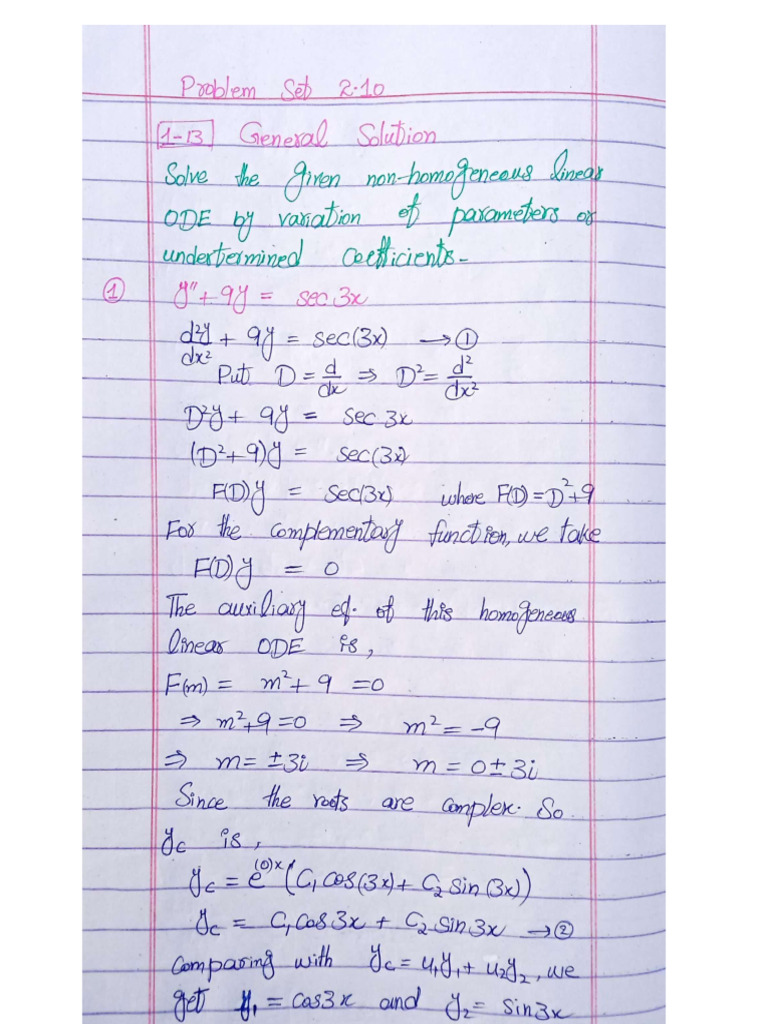 Problem Set 2.10
1-13 General Solution
Solve the given non-homogeneous linear
ODE by variation of parameters or
undertermined Coefficients-
① y″ + 9y = sec 3x
d²y/dx² + 9y = sec(3x) → ①
Put D = d/dx ⇒ D² = d²/dx²
D²y + 9y = sec 3x
(D² + 9)y = sec(3x)
F(D)y = sec(3x) where F(D) = D² + 9
For the complementary function, we take
F(D)y = 0
The auxiliary eq. of this homogeneous
linear ODE is,
F(m) = m² + 9 = 0
⇒ m² + 9 = 0 ⇒ m² = -9
⇒ m = ±3i ⇒ m = 0 ± 3i
Since the roots are complex. So
y_c is,
y_c = e^(0)x (C₁ cos(3x) + C₂ sin(3x))
y_c = C₁ cos 3x + C₂ sin 3x → ②
Comparing with y_c = u₁y₁ + u₂y₂, we
get y₁ = cos 3x and y₂ = sin 3x